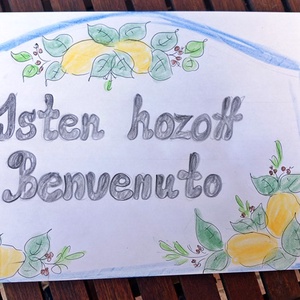 Isten hozott
Benvenuto